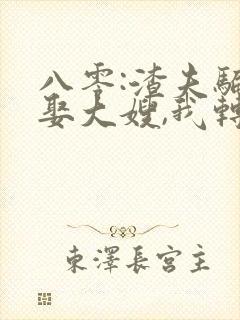 八零:渣夫騙
娶大嫂,我轉
東澤長宮主